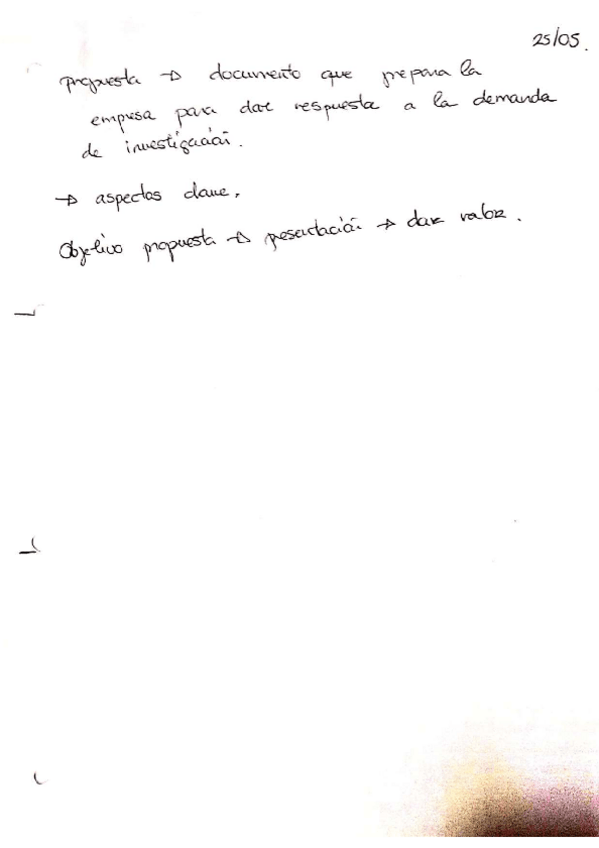 25/05.
propuesta → documento que prepara la
empresa para dar respuesta a la demanda
de investigación.
→ aspectos clave.
Objetivo propuesta → presentación → dar valor.